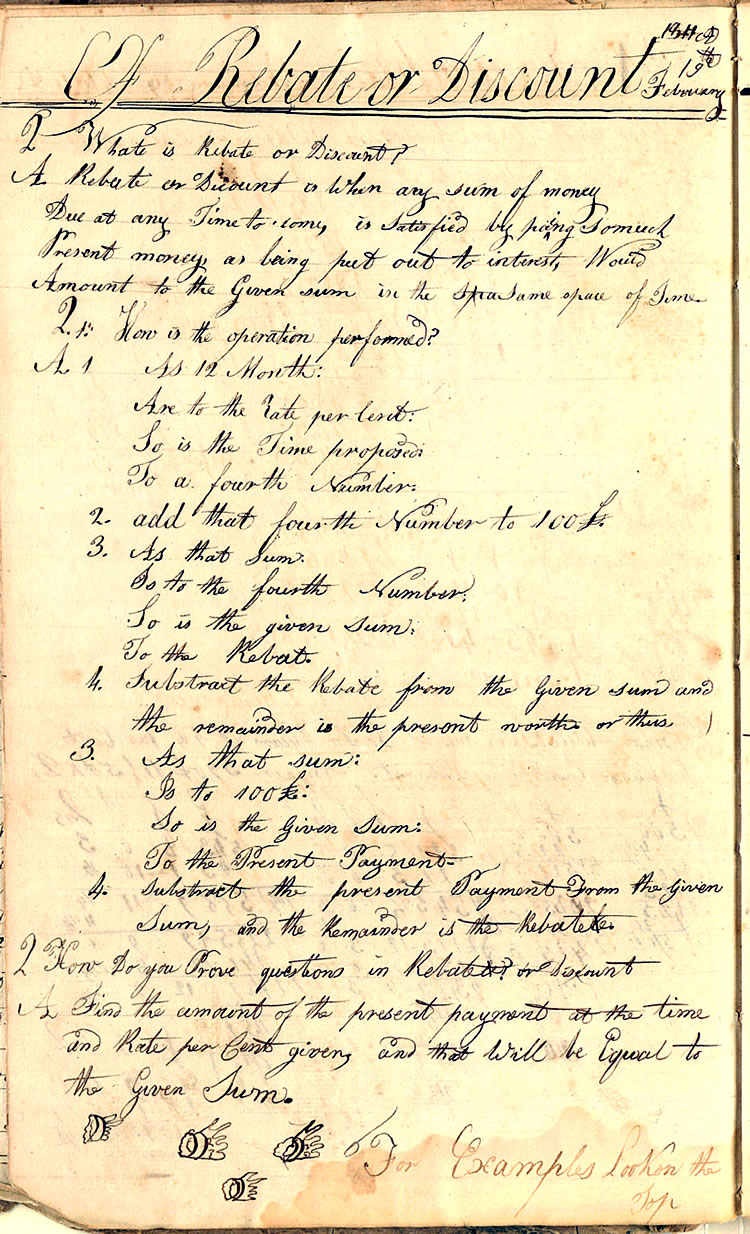 Of Rebate or Discount
19th
February
Q What is Rebate or Discount?
A Rebate or Dicount is When any sum of money
Due at any Time to come, is satisfied by paing so much
Present money, as being put out to interest, Would
Amount to the Given sum in the Spa Same space of Time
Q. 1: How is the operation performed?
A. 1 As 12 Month:
Are to the Rate per Cent:
So is the Time proposed:
To a fourth Number:
2. add that fourth Number to 100£.
3. As that Sum:
Is to the fourth Number:
So is the given sum:
To the Rebat.
4. Substract the Rebate from the Given sum and
the remainder is the present worth or thus
3. As that sum:
Is to 100£:
So is the Given Sum:
To the Present Payment
4. Substract the present Payment From the Given
Sum, and the Remainder is the Rebate.
Q How Do you Prove questions in Rebate? or Discount
A Find the amount of the present payment at the time
and Rate per Cent given, and that Will be Equal to
the Given Sum.
For Examples Look on the
Top